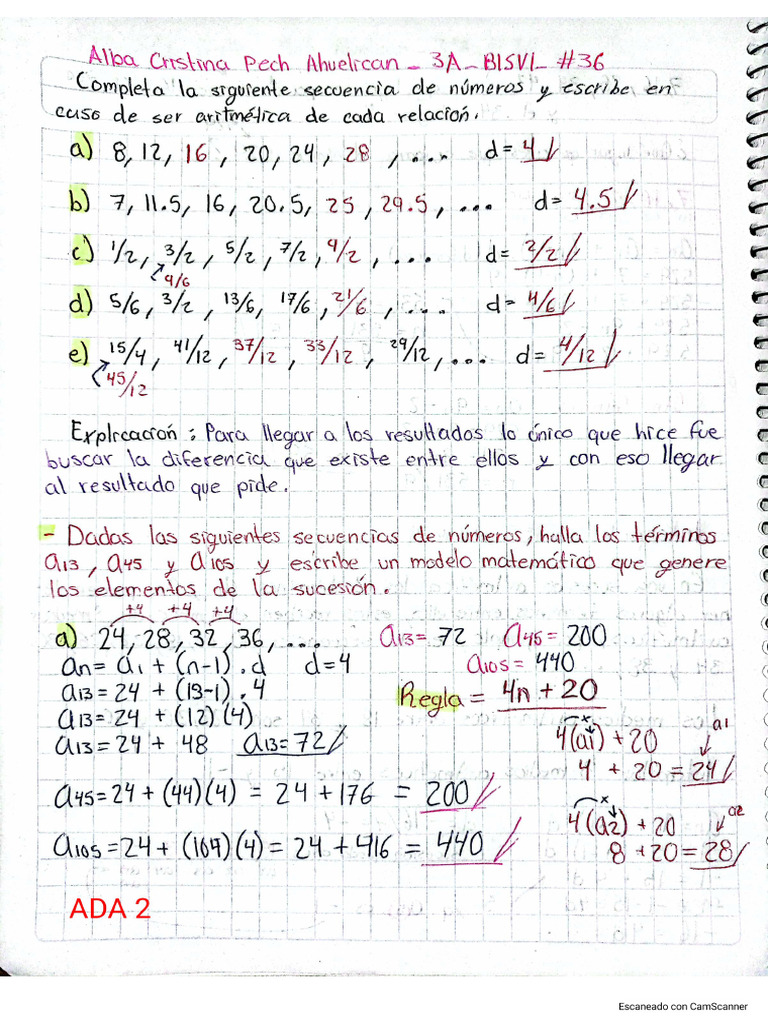 Alba Cristina Pech Ahuelican - 3A - B1SVL #36
Completa la siguiente secuencia de números y escribe en
caso de ser aritmética de cada relación.
a) 8, 12, 16, 20, 24, 28, ... d= 4
b) 7, 11.5, 16, 20.5, 25, 29.5, ... d= 4.5
c) 1/2, 3/2, 5/2, 7/2, 9/2, ... d= 2/2
9/6
d) 5/6, 3/2, 13/6, 17/6, 21/6, ... d= 4/6
e) 15/4, 41/12, 37/12, 33/12, 29/12, ... d= 4/12
45/12
Explicación: Para llegar a los resultados lo único que hice fue
buscar la diferencia que existe entre ellos y con eso llegar
al resultado que pide.
- Dadas las siguientes secuencias de números, halla los términos
a13, a45 y a105 y escribe un modelo matemático que genere
los elementos de la sucesión.
+4 +4 +4
a) 24, 28, 32, 36, ... a13= 72 a45= 200
an= a1 + (n-1).d d=4 a105= 440
a13= 24 + (13-1).4 Regla = 4n + 20
a13= 24 + (12)(4) 4(a1) + 20 a1
a13= 24 + 48 a13= 72 4 + 20 = 24
a45= 24 + (44)(4) = 24 + 176 = 200 4(a2) + 20 a2
a105= 24 + (104)(4) = 24 + 416 = 440 8 + 20 = 28
ADA 2
Escaneado con CamScanner